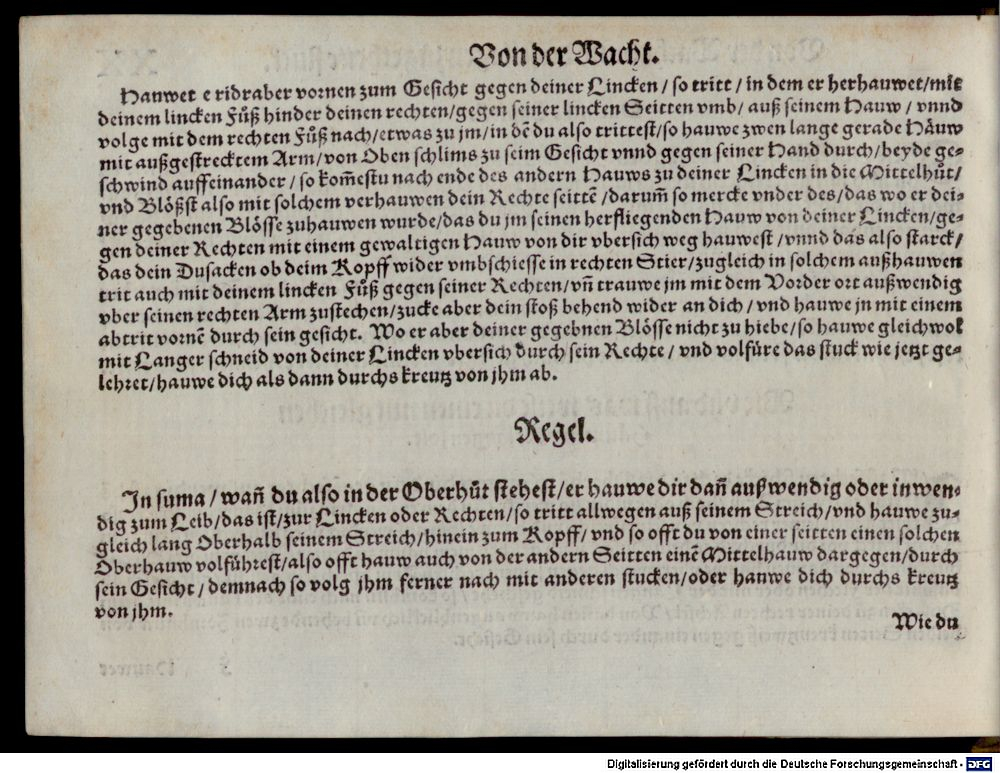 Von der Wacht.
Hauwet e ridraber vornen zum Gesicht gegen deiner Lincken / so tritt / in dem er herhauwet/mit
deinem lincken Fůß hinder deinen rechten/gegen seiner lincken Seitten vmb/ auß seinem Hauw / vnnd
volge mit dem rechten Fůß nach/etwas zu jm/in dẽ du also trittest/so hauwe zwen lange gerade Häuw
mit außgestrecktem Arm/von Oben schlims zu seim Gesicht vnnd gegen seiner Hand durch/beyde ge⸗
schwind auffeinander / so kom̃estu nach ende des andern Hauws zu deiner Lincken in die Mittelhůt/
vnd Blößst also mit solchem verhauwen dein Rechte seittẽ /darum̃ so mercke vnder des/das wo er dei⸗
ner gegebenen Blösse zuhauwen wurde/das du jm seinen herfliegenden Hauw von deiner Lincken/ge⸗
gen deiner Rechten mit einem gewaltigen Hauw von dir vbersich weg hauwest /vnnd das also starck/
das dein Dusacken ob deim Kopff wider vmbschiesse in rechten Stier/zugleich in solchem außhauwen
trit auch mit deinem lincken Fůß gegen seiner Rechten/vñ trauwe jm mit dem Vorder ort außwendig
vber seinen rechten Arm zustechen/zucke aber dein stoß behend wider an dich/ vnd hauwe jn mit einem
abtrit vornẽ durch sein gesicht. Wo er aber deiner gegebnen Blösse nicht zu hiebe/so hauwe gleich wol
mit Langer schneid von deiner Lincken vbersich durch sein Rechte / vnd volfüre das stuck wie jetzt ge⸗
lehret/hauwe dich als dann durchs kreutz von jhm ab.
Regel.
In suma / wañ du also in der Oberhůt stehest/er hauwe dir dañ außwendig oder inwen⸗
dig zum Leib/das ist/zur Lincken oder Rechten/so tritt allwegen auß seinem Streich/vnd hauwe zu⸗
gleich lang Oberhalb seinem Streich/hinein zum Kopff/ vnd so offt du von einer seitten einen solchen
Oberhauw volführest/also offt hauw auch von der andern Seitten einẽ Mittelhauw dargegen/durch
sein Gesicht/demnach so volg jhm ferner nach mit anderen stucken/oder hauwe dich durchs kreutz
von jhm.
Wie du
Digitalisierung gefördert durch die Deutsche Forschungsgemeinschaft - DFG